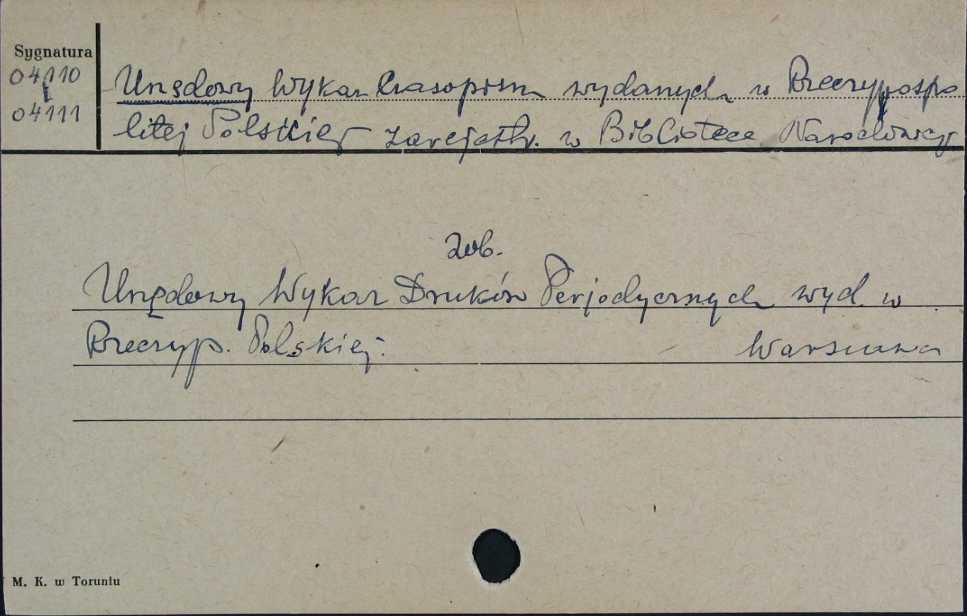 Sygnatura
04110
04111
Urzędowy Wykaz Czasopism wydanych w Rzeczypospo
litej Polskiej zarejestr. w Bibliotece Narodowej
Zob.
Urzędowy Wykaz Druków Perjodycznych wyd. w
Rzeczyp. Polskiej.   Warszawa
M. K. w Toruniu